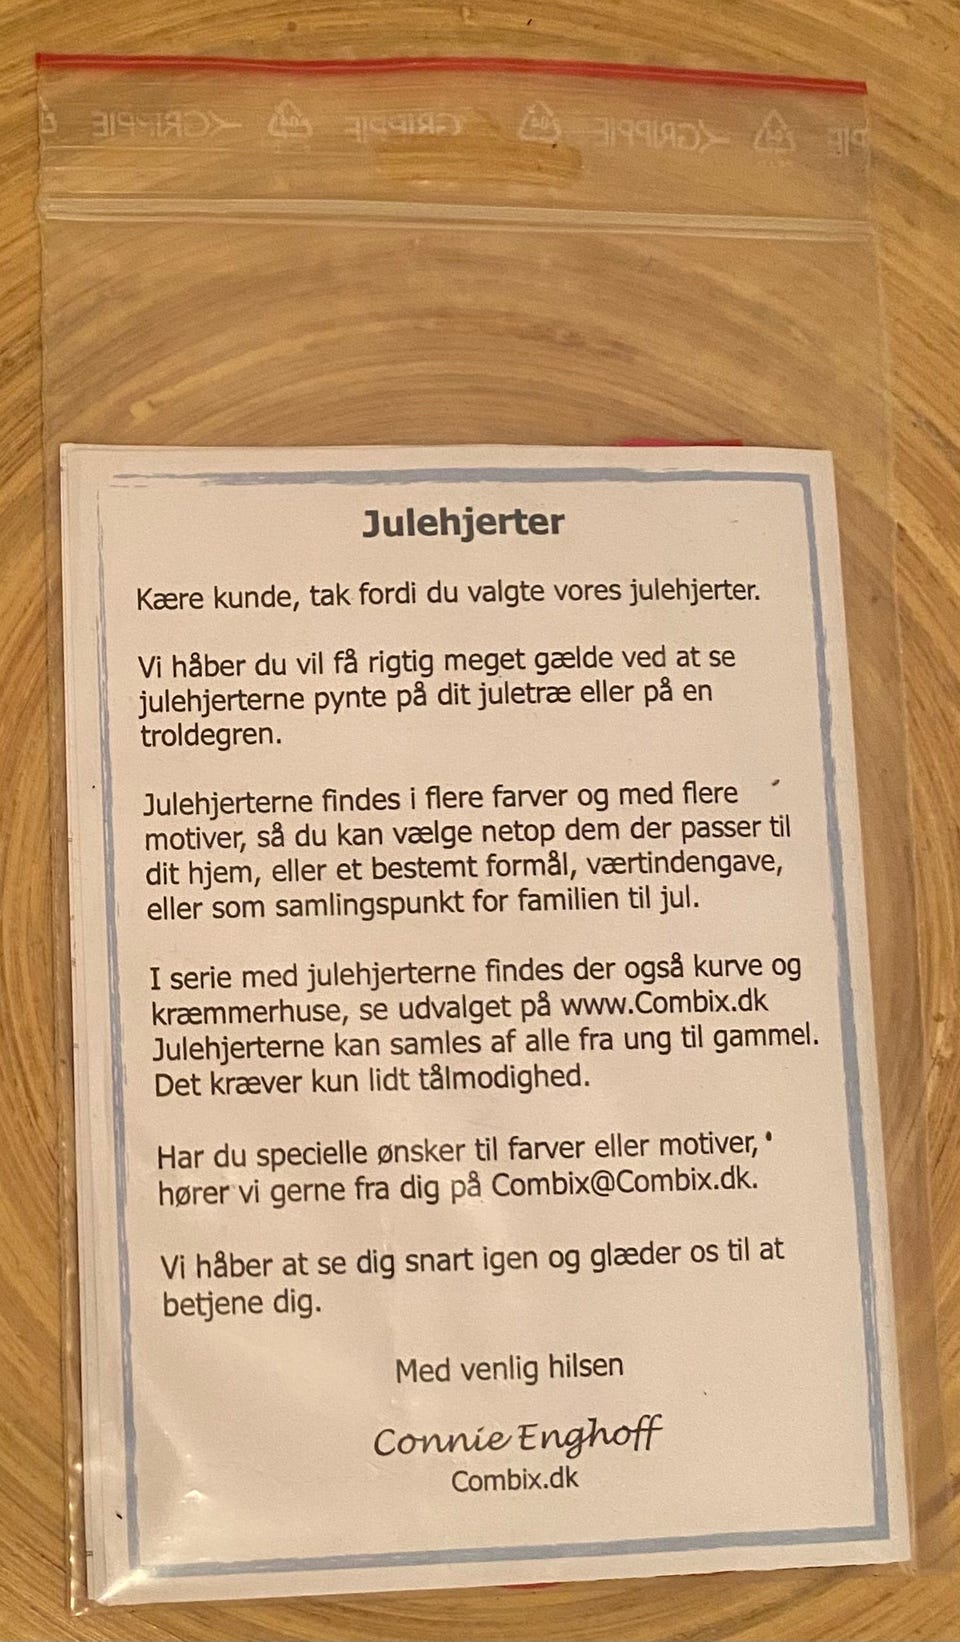 GRIPPIE
GRIPPIE
GRIPPIE
Julehjerter
Kære kunde, tak fordi du valgte vores julehjerter.
Vi håber du vil få rigtig meget gælde ved at se
julehjerterne pynte på dit juletræ eller på en
troldegren.
Julehjerterne findes i flere farver og med flere
motiver, så du kan vælge netop dem der passer til
dit hjem, eller et bestemt formål, værtindengave,
eller som samlingspunkt for familien til jul.
I serie med julehjerterne findes der også kurve og
kræmmerhuse, se udvalget på www.Combix.dk
Julehjerterne kan samles af alle fra ung til gammel.
Det kræver kun lidt tålmodighed.
Har du specielle ønsker til farver eller motiver,
hører vi gerne fra dig på Combix@Combix.dk.
Vi håber at se dig snart igen og glæder os til at
betjene dig.
Med venlig hilsen
Connie Enghoff
Combix.dk